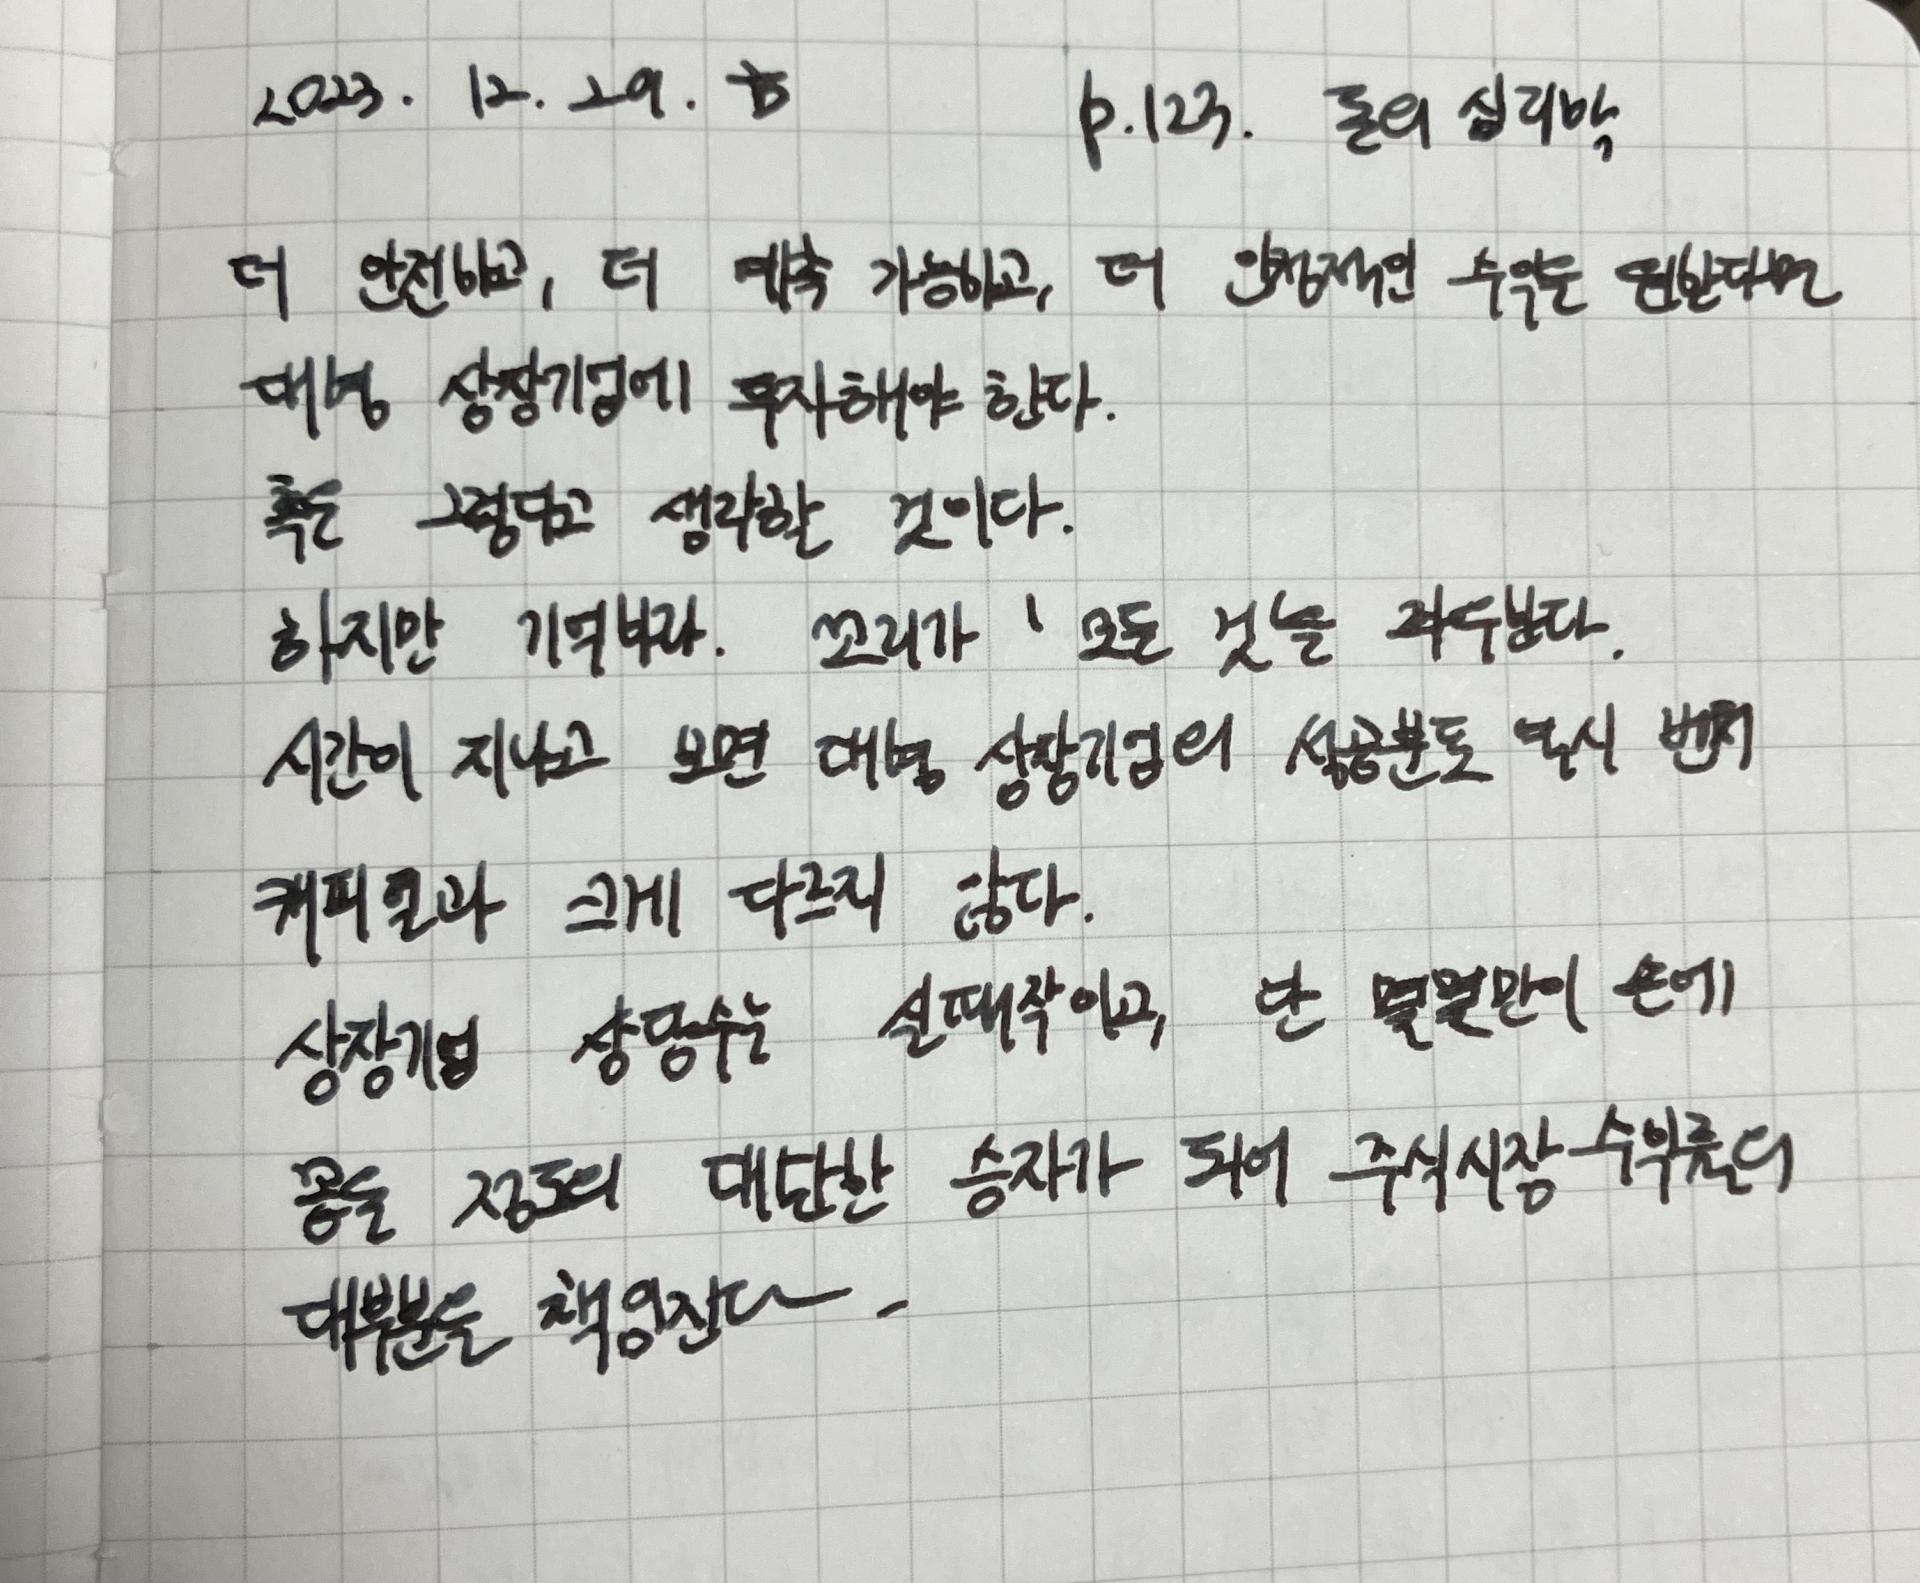 2023. 12. 29. 금 p.123. 돈의 심리학
더 안전하고, 더 예측 가능하고, 더 안정적인 수익을 원한다면
대형 상장기업에 투자해야 한다.
혹은 그렇다고 생각할 것이다.
하지만 기억하라. 꼬리가 '모든 것'을 좌우한다.
시간이 지나고 보면 대형 상장기업의 성공분포 역시 벤처
캐피털과 크게 다르지 않다.
상장기업 상당수는 실패작이고, 단 몇몇만이 손에
꼽을 정도의 대단한 승자가 되어 주식시장 수익률의
대부분을 책임진다.